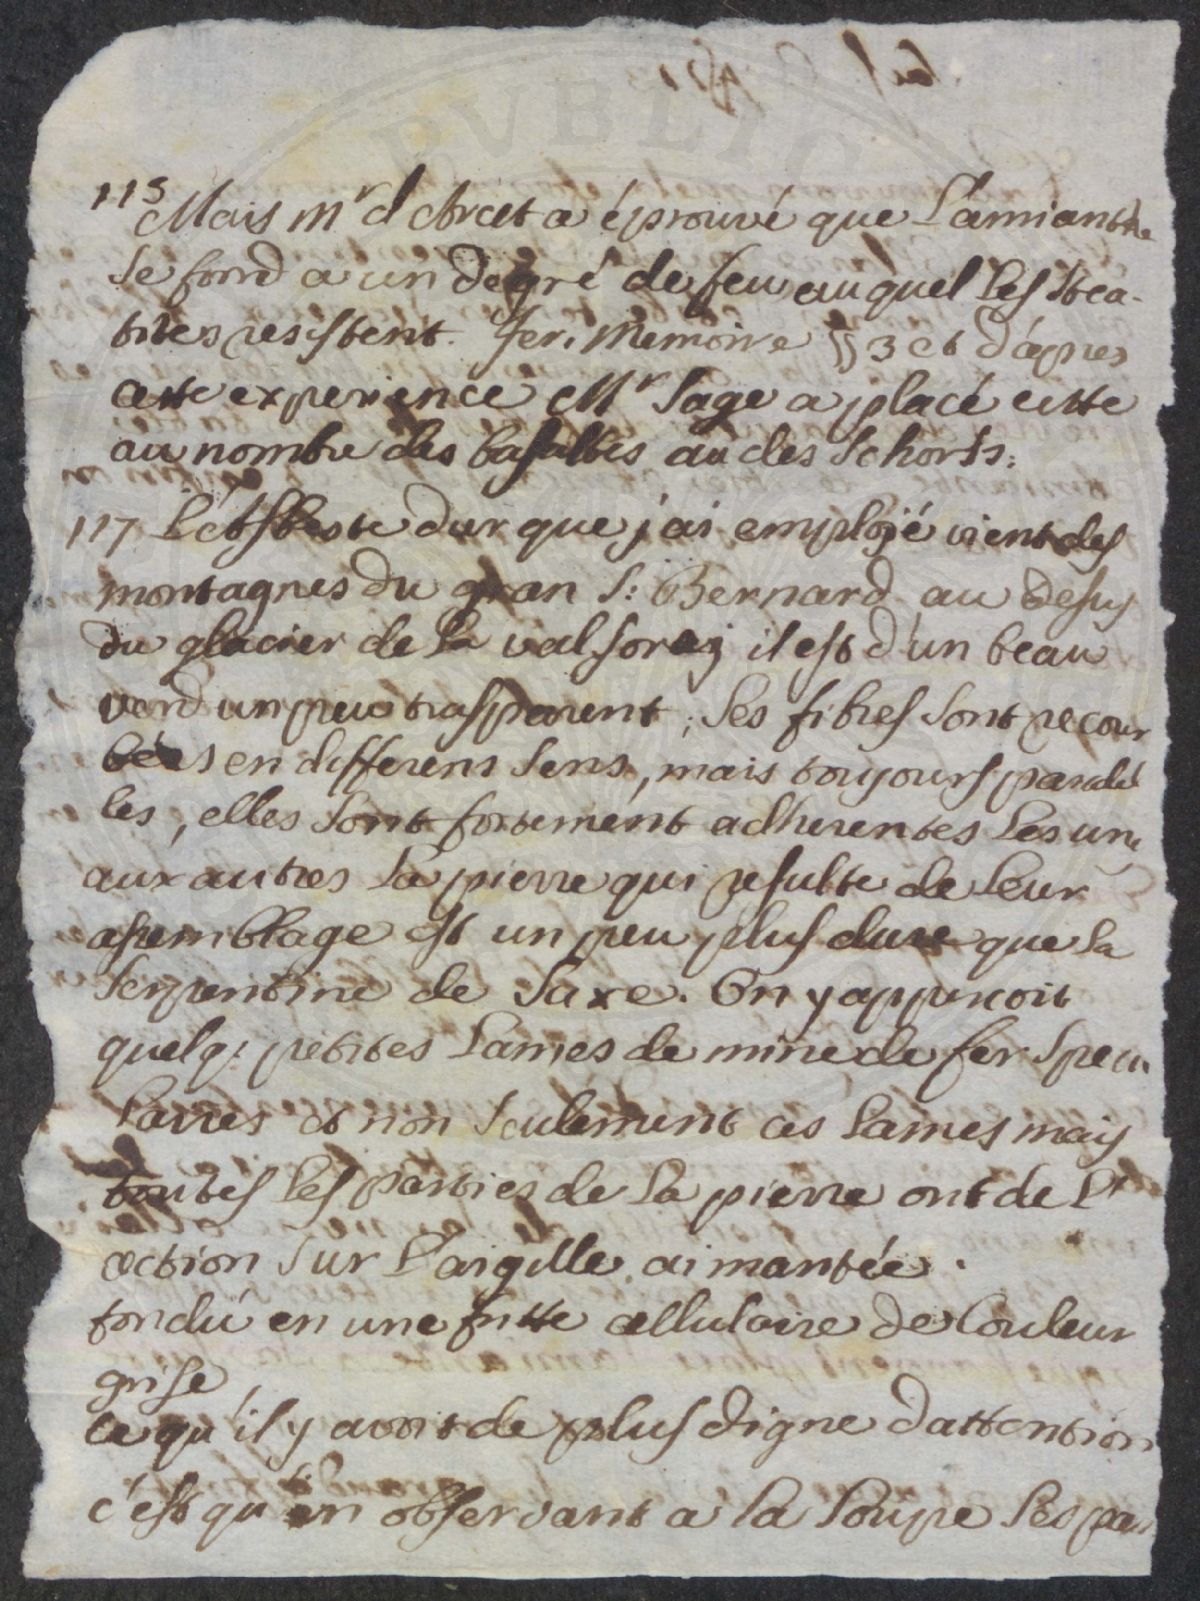 115
Mais Mr d'Arcet a éprouvé que L'amianthe
se fond a un degré de feu auquel Les stea-
tites resistent. Ier. Memoire §§ 3 et d'apres
cette experience Mr Sage a placé cette
au nombre des basaltes au des schorls.
117 L'Asbeste dur que j'ai emploié vient des
montagnes du gran S: Bernard au desus
du glacier de La valsorey il est d'un beau
verd un peu trasparent; Ses fibres sont recour
bées en differens Sens, mais toujours paralé
les, elles Sont fortement adherentes Les une
aux autres La pierre qui resulte de Leur
asemblage est un peu plus dure que La
Serpentine de Saxe. On y apperçoit
quelq: petites Lames de mine de fer Specu
Laires et non Seulement ces Lames mais
toutes Les parties de La pierre ont de L'
action Sur L'aigille aimantée.
fondu en une fritte cellulaire de Couleur
grise
ce qu'il y avoit de plus digne d'attention
c'est qu'en observant a La Loupe Les par